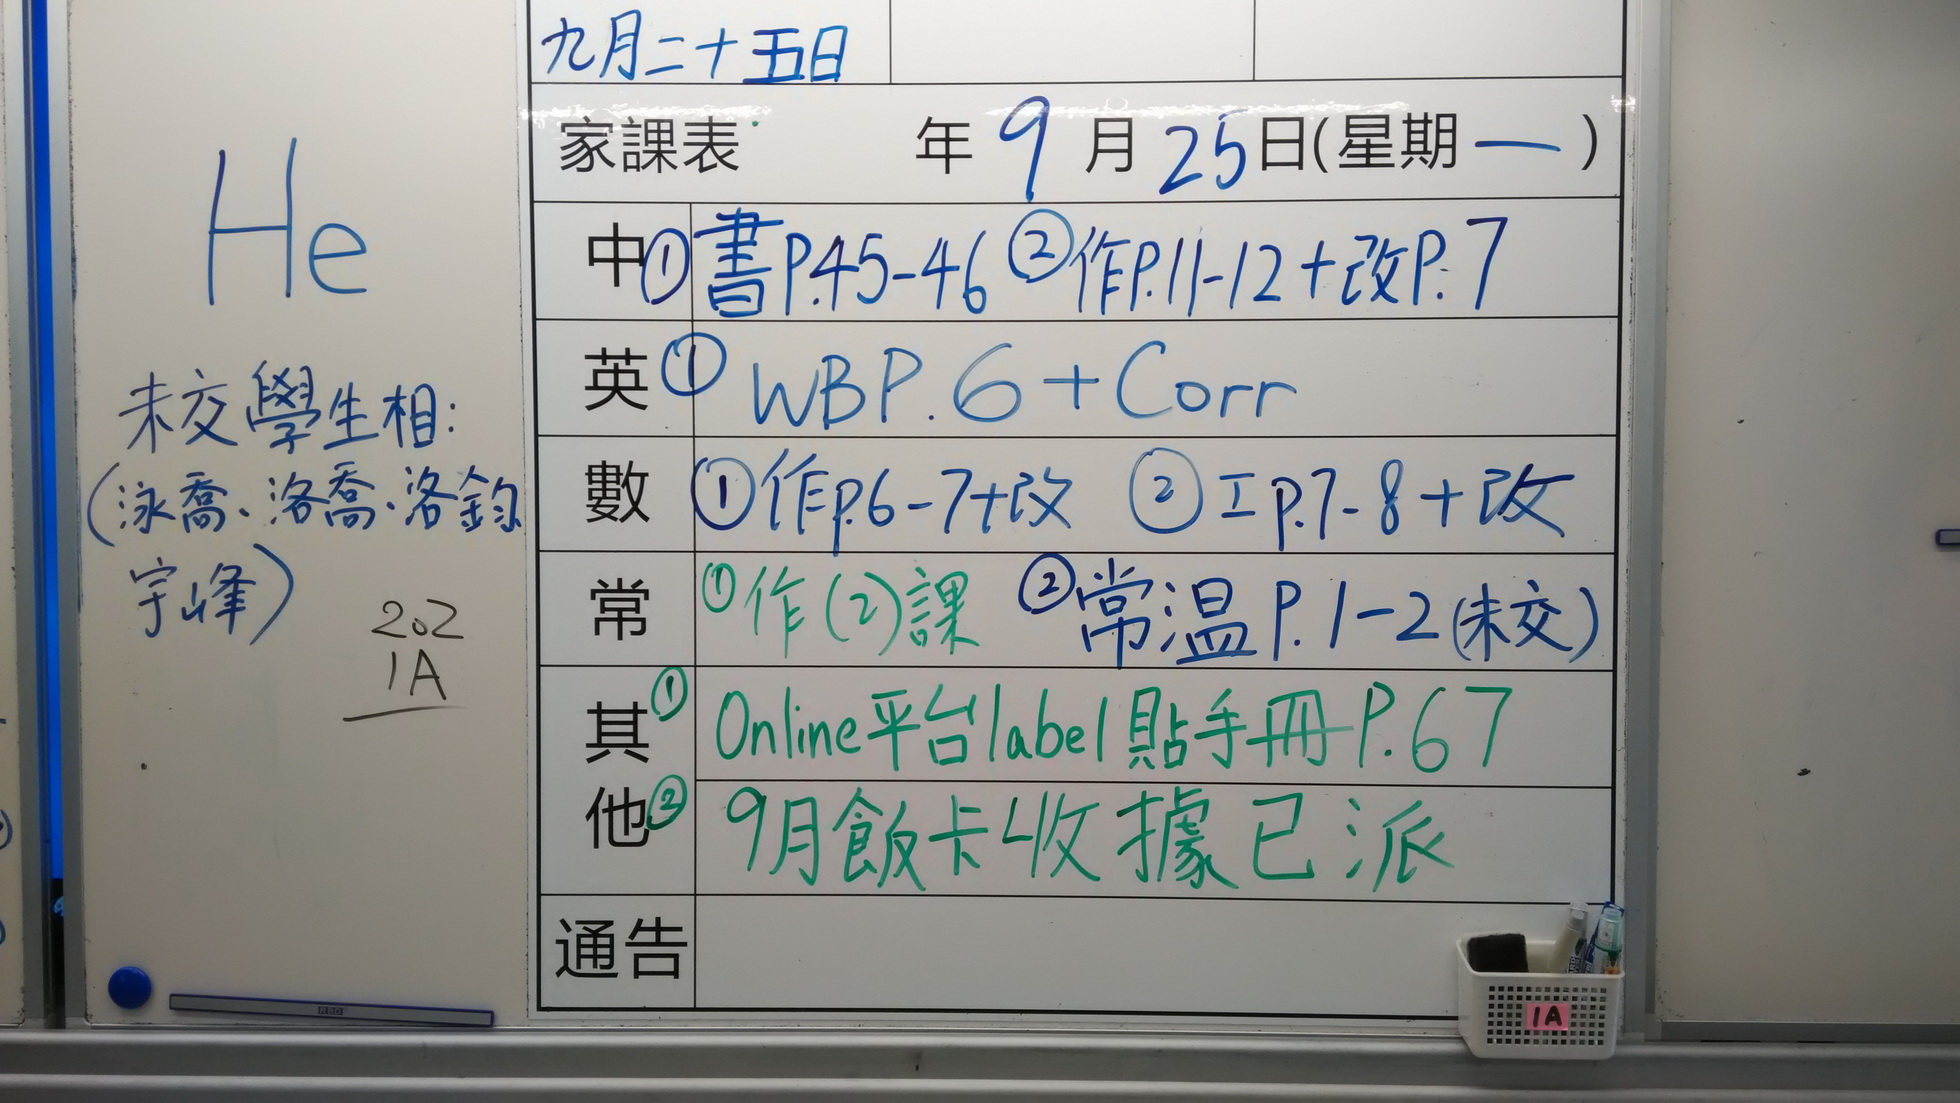 九月二十五日
家課表 年 9 月 25 日(星期一)
中 ① 書P.45-46 ② 作P.11-12+改P.7
英 ① WB P.6+Corr
數 ① 作p.6-7+改 ② 工p.7-8+改
常 ① 作(2)課 ② 常温P.1-2(未交)
其他 ① Online平台label貼手冊P.67
② 9月飯卡收據已派
通告
He
未交學生相:
(泳喬、洛喬、洛鈞
宇峰)
202
1A
1A